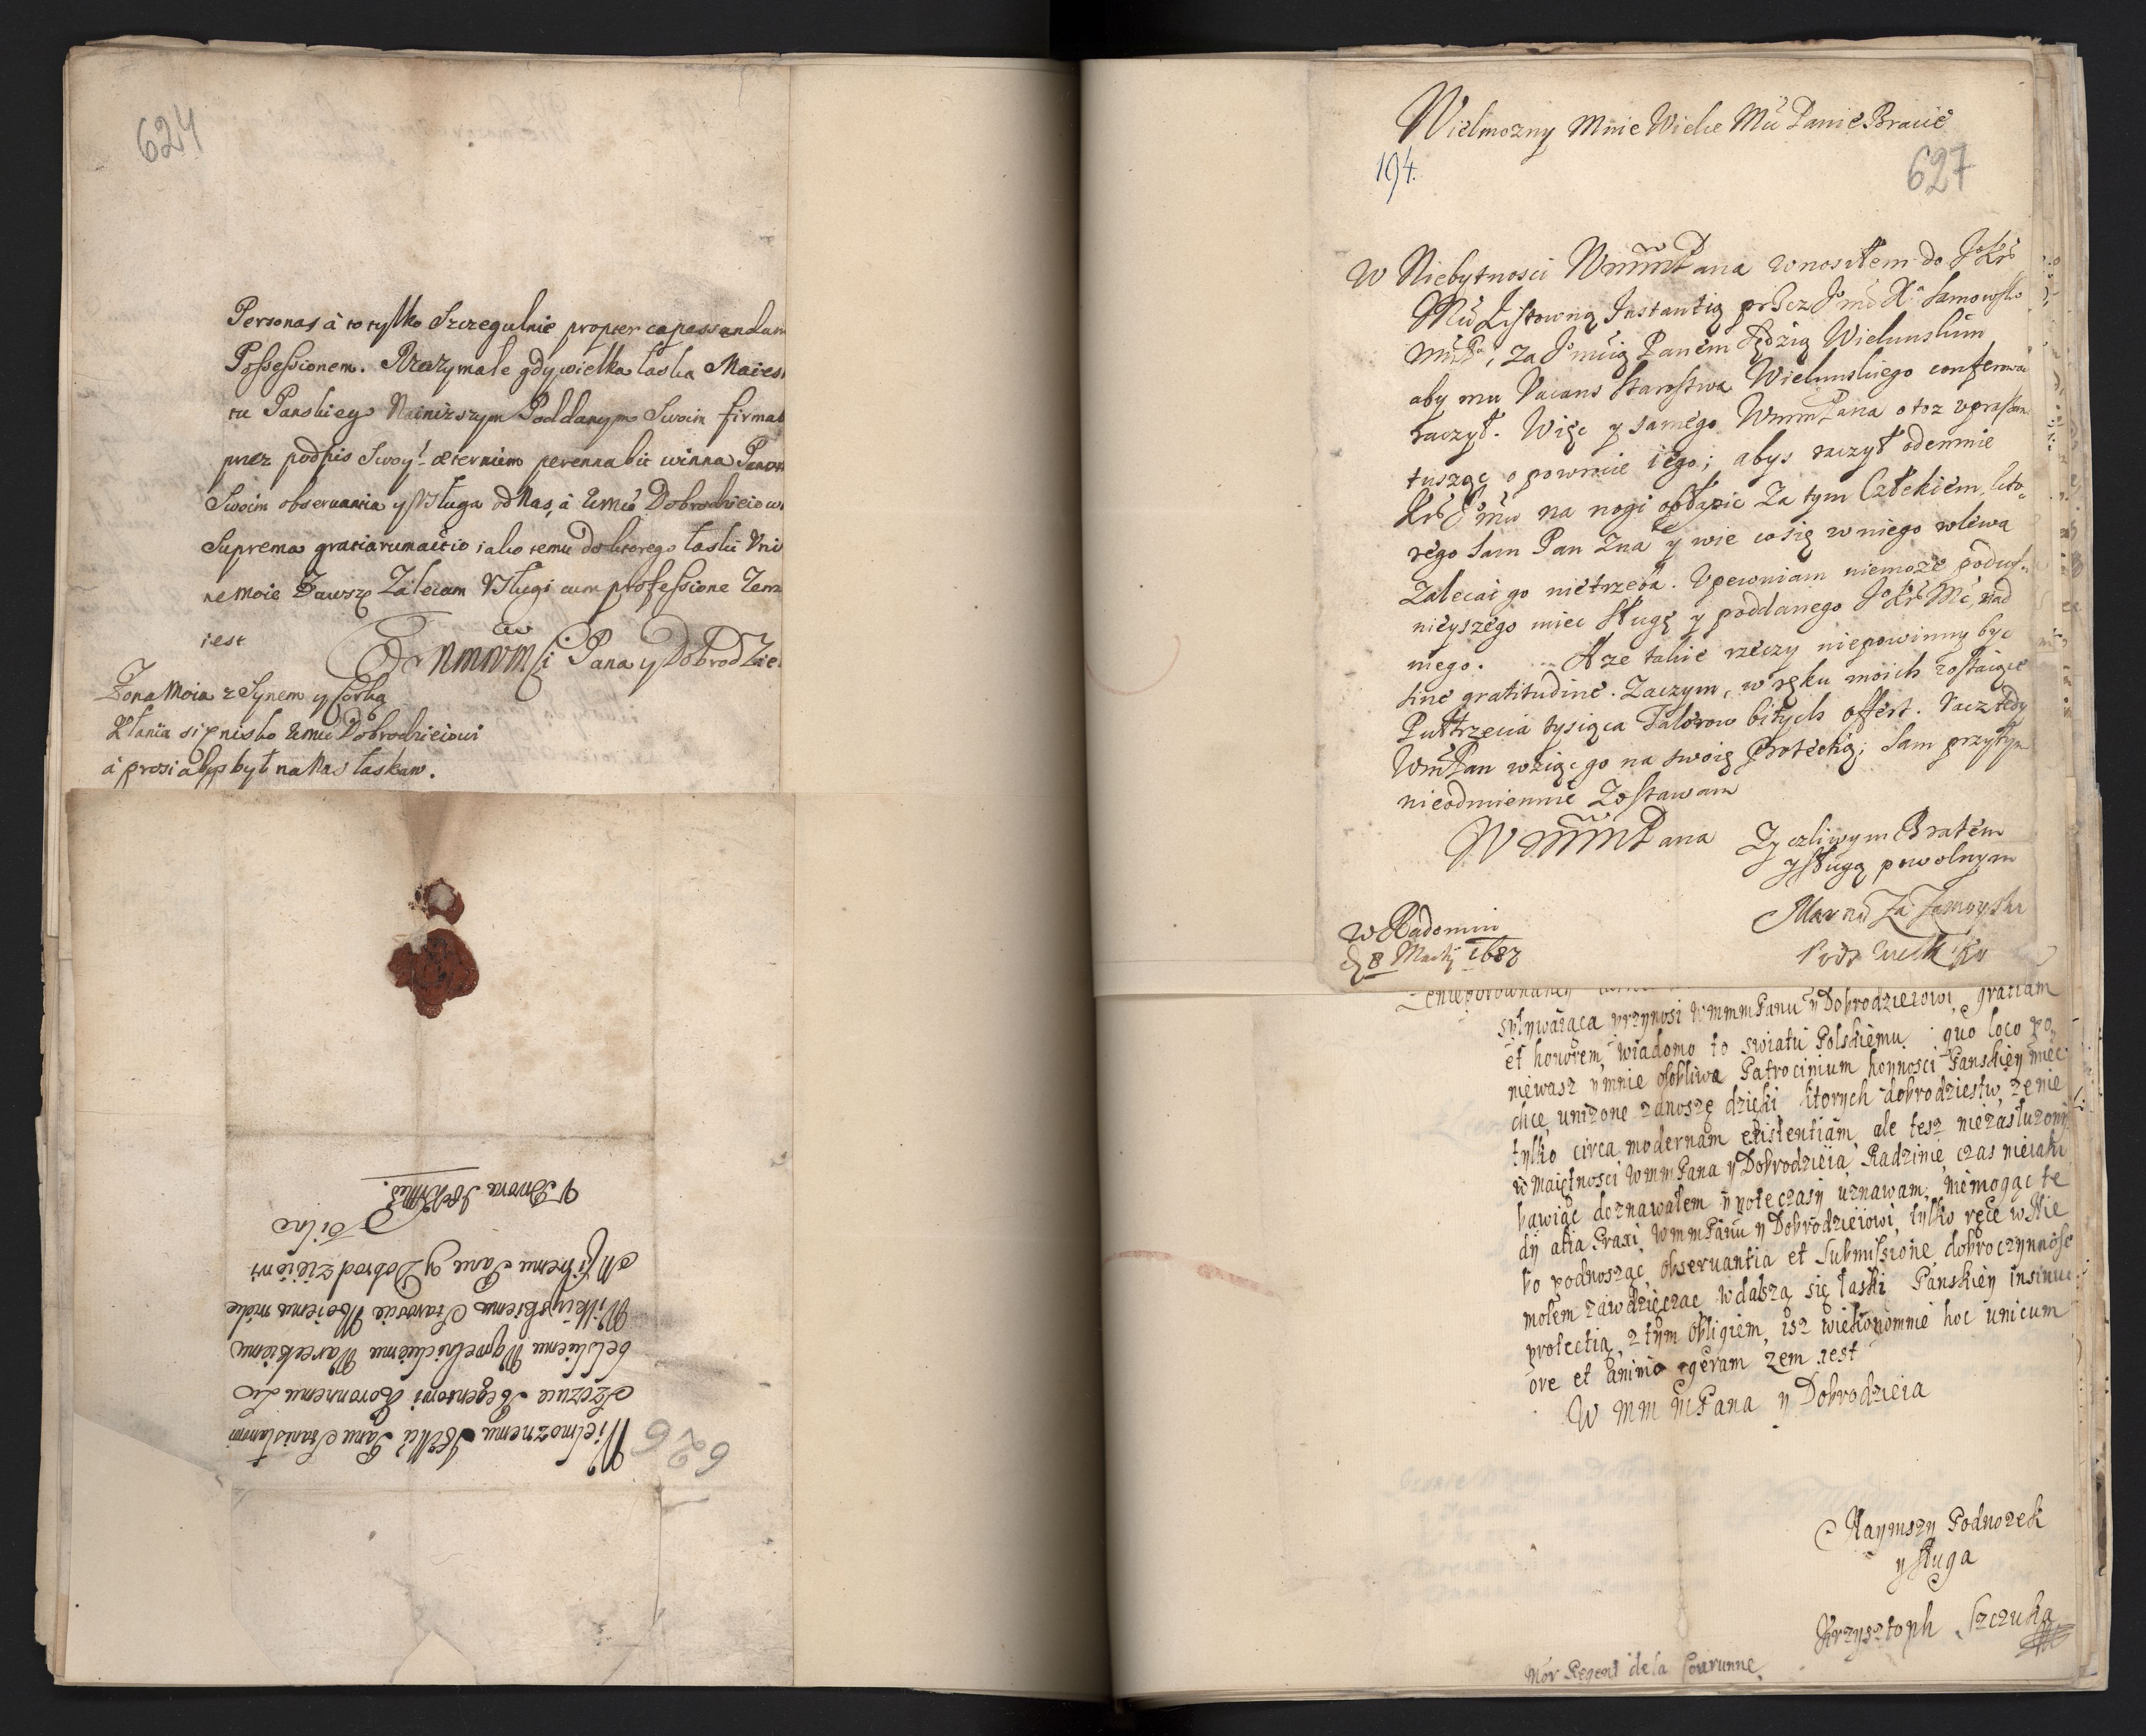 624
Personas à to tylko Szczegulnie propter capessendam
Possessionem. Rzeczy małe gdy wielka łaska Maies
tu Panskiego Nainiższym Poddanym Swoim firmat
przez podpis Swoy! æternum perennabit winna Panom
Swoim observantia y Usługa od Nas, à Wmć Dobrodzieiowi
Suprema gratiarum actio iako temu do ktorego łaski Uni
ne moie Zawsze Zalecam Usługi cum professione Zem
iest
Pana y Dobrodzie
Zona Moia z Synem y Corką
Kłania się nisko Wmć Dobrodzieiowi
à prosi abyś był na Nas łaskaw.
626
Wielmoznemu Panu Stanisławowi
Szczuce Regentowi Koronnemu Lu
belskiemu Wąwelnickiemu Wareckiemu
Wilkiyskiemu Staroscie Moiemu wielce
Mściwemu Panu y Dobrodzieiowi
Pilno
U Dworu JoKrMci.
Wielmozny Mnie Wielce Mći Panie Bracie
194.
627
W Niebytnosci WmmPana wnosiłem do JoKr
Mći Listowną Instantią przez
za Panem Sędzią Wielunskim
aby mu Vacans Starostwa Wielunskiego conferować
raczył. Więc y samego WmmPana otoz upraszam
tuszęc o powrocie iego; abys raczył odemnie
na nogi obłapic Za tym Człekiem, kto-
rego Sam Pan Zna y wie co się w niego wlewa
Zalecać go nietrzeba. Upewniam niemoże poduf-
nieyszego miec Sługę y poddanego JoKrMć, nad
niego. A ze takie rzeczy niepowinny byc
sine gratitudine. Zaczym, w ręku moich zostaiące
Pułtrzecia tysiąca Talerow bitych offert. Racz tedy
WmPan wziąc go na swoię Protectią; Sam przytym
nieodmiennie Zostawam
WmmPana Zyczliwym Bratem
y sługą powolnym
W Radomiu
d 8 Maij 1687
spływaiąca przynosi WmmmPanu y Dobrodzieiowi gratiam
et honorem, wiadomo to swiatu Polskiemu quo loco po
niewasz y mnie osobliwe Patrocinium honnosci Panskiey miec
chce, unizone zanoszę dzięki ktorych dobrodziestw, ze nie
tylko circa modernam existentiam ale tesz niezasłuzony
w maiętnosci WmmPana y Dobrodzieia Radzinie, czas nieiaki
bawiąc doznawałem y po te czasy uznawam; niemogąc te
dy alia Praxi WmmPanu y Dobrodzieiowi, tylko ręce w Nie
bo podnosząc, observantia et Submissione dobroczynnosc
motem zawdzięczac, w dalszą się łaski Panskiey insinuo
protectią, z tym obligiem, isz wiekonomnie hoc unicum
ore et animo geram zem iest
W mm mPana y Dobrodzieia
Naynisszy Podnozek
y sługa
Krzysztoph Szczuka
Mor Regent de la Courunne.